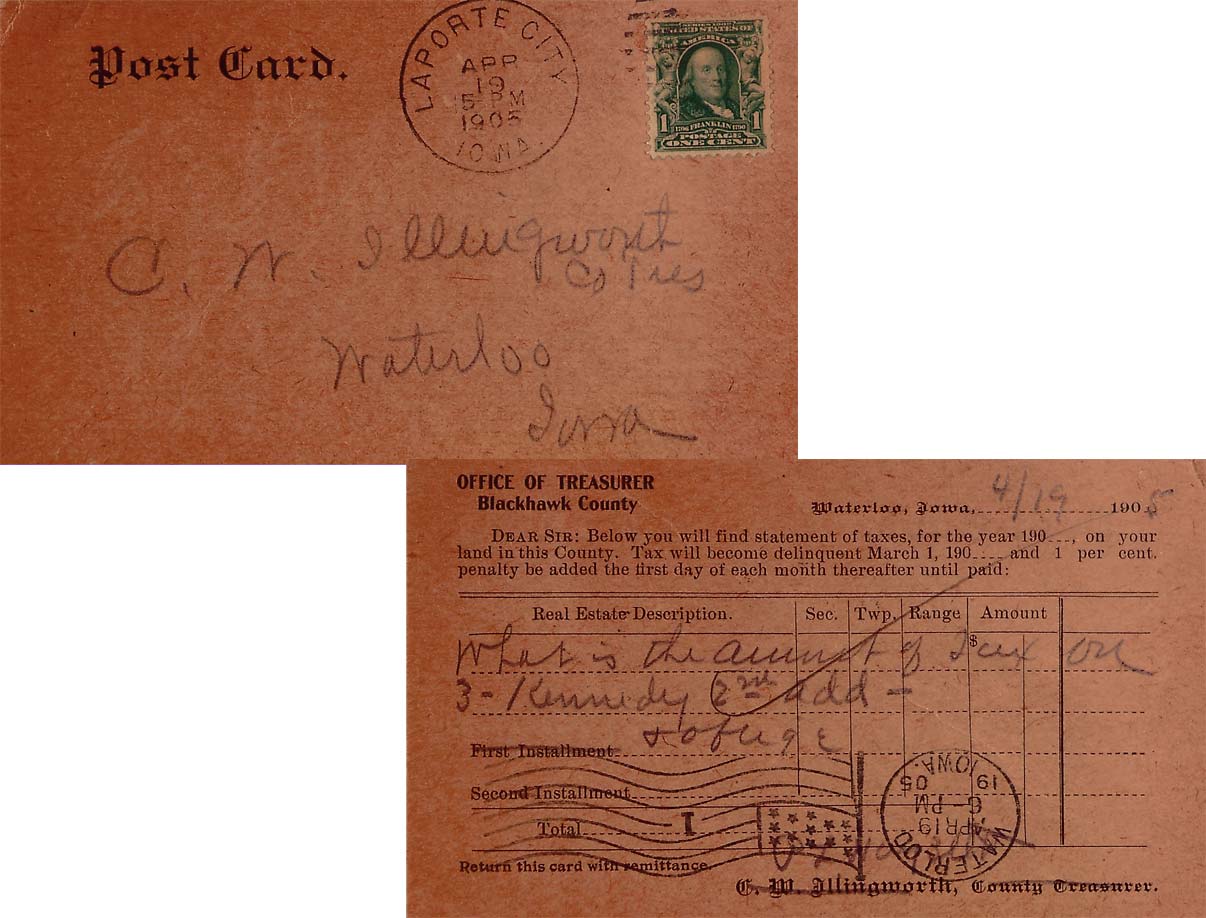 Post Card.
LAPORTE CITY
APR
19
5-PM
1905
IOWA.
SERIES 1902
UNITED STATES OF
AMERICA
1706 FRANKLIN 1790
1 POSTAGE 1
ONE CENT
C. W. Illingworth
Co Tres
Waterloo
Iowa
OFFICE OF TREASURER
Blackhawk County
Waterloo, Iowa, 4/19 1905
DEAR SIR: Below you will find statement of taxes, for the year 190...., on your
land in this County. Tax will become delinquent March 1, 190.... and 1 per cent.
penalty be added the first day of each month thereafter until paid:
Real Estate Description. Sec. Twp. Range Amount
$
What is the amount of Tax on
3 - Kennedy 2nd add -
& oblige
First Installment
Second Installment
Total
1
WATERLOO
APR 19
6-PM
19 05
IOWA.
Return this card with remittance.
C. W. Illingworth, County Treasurer.